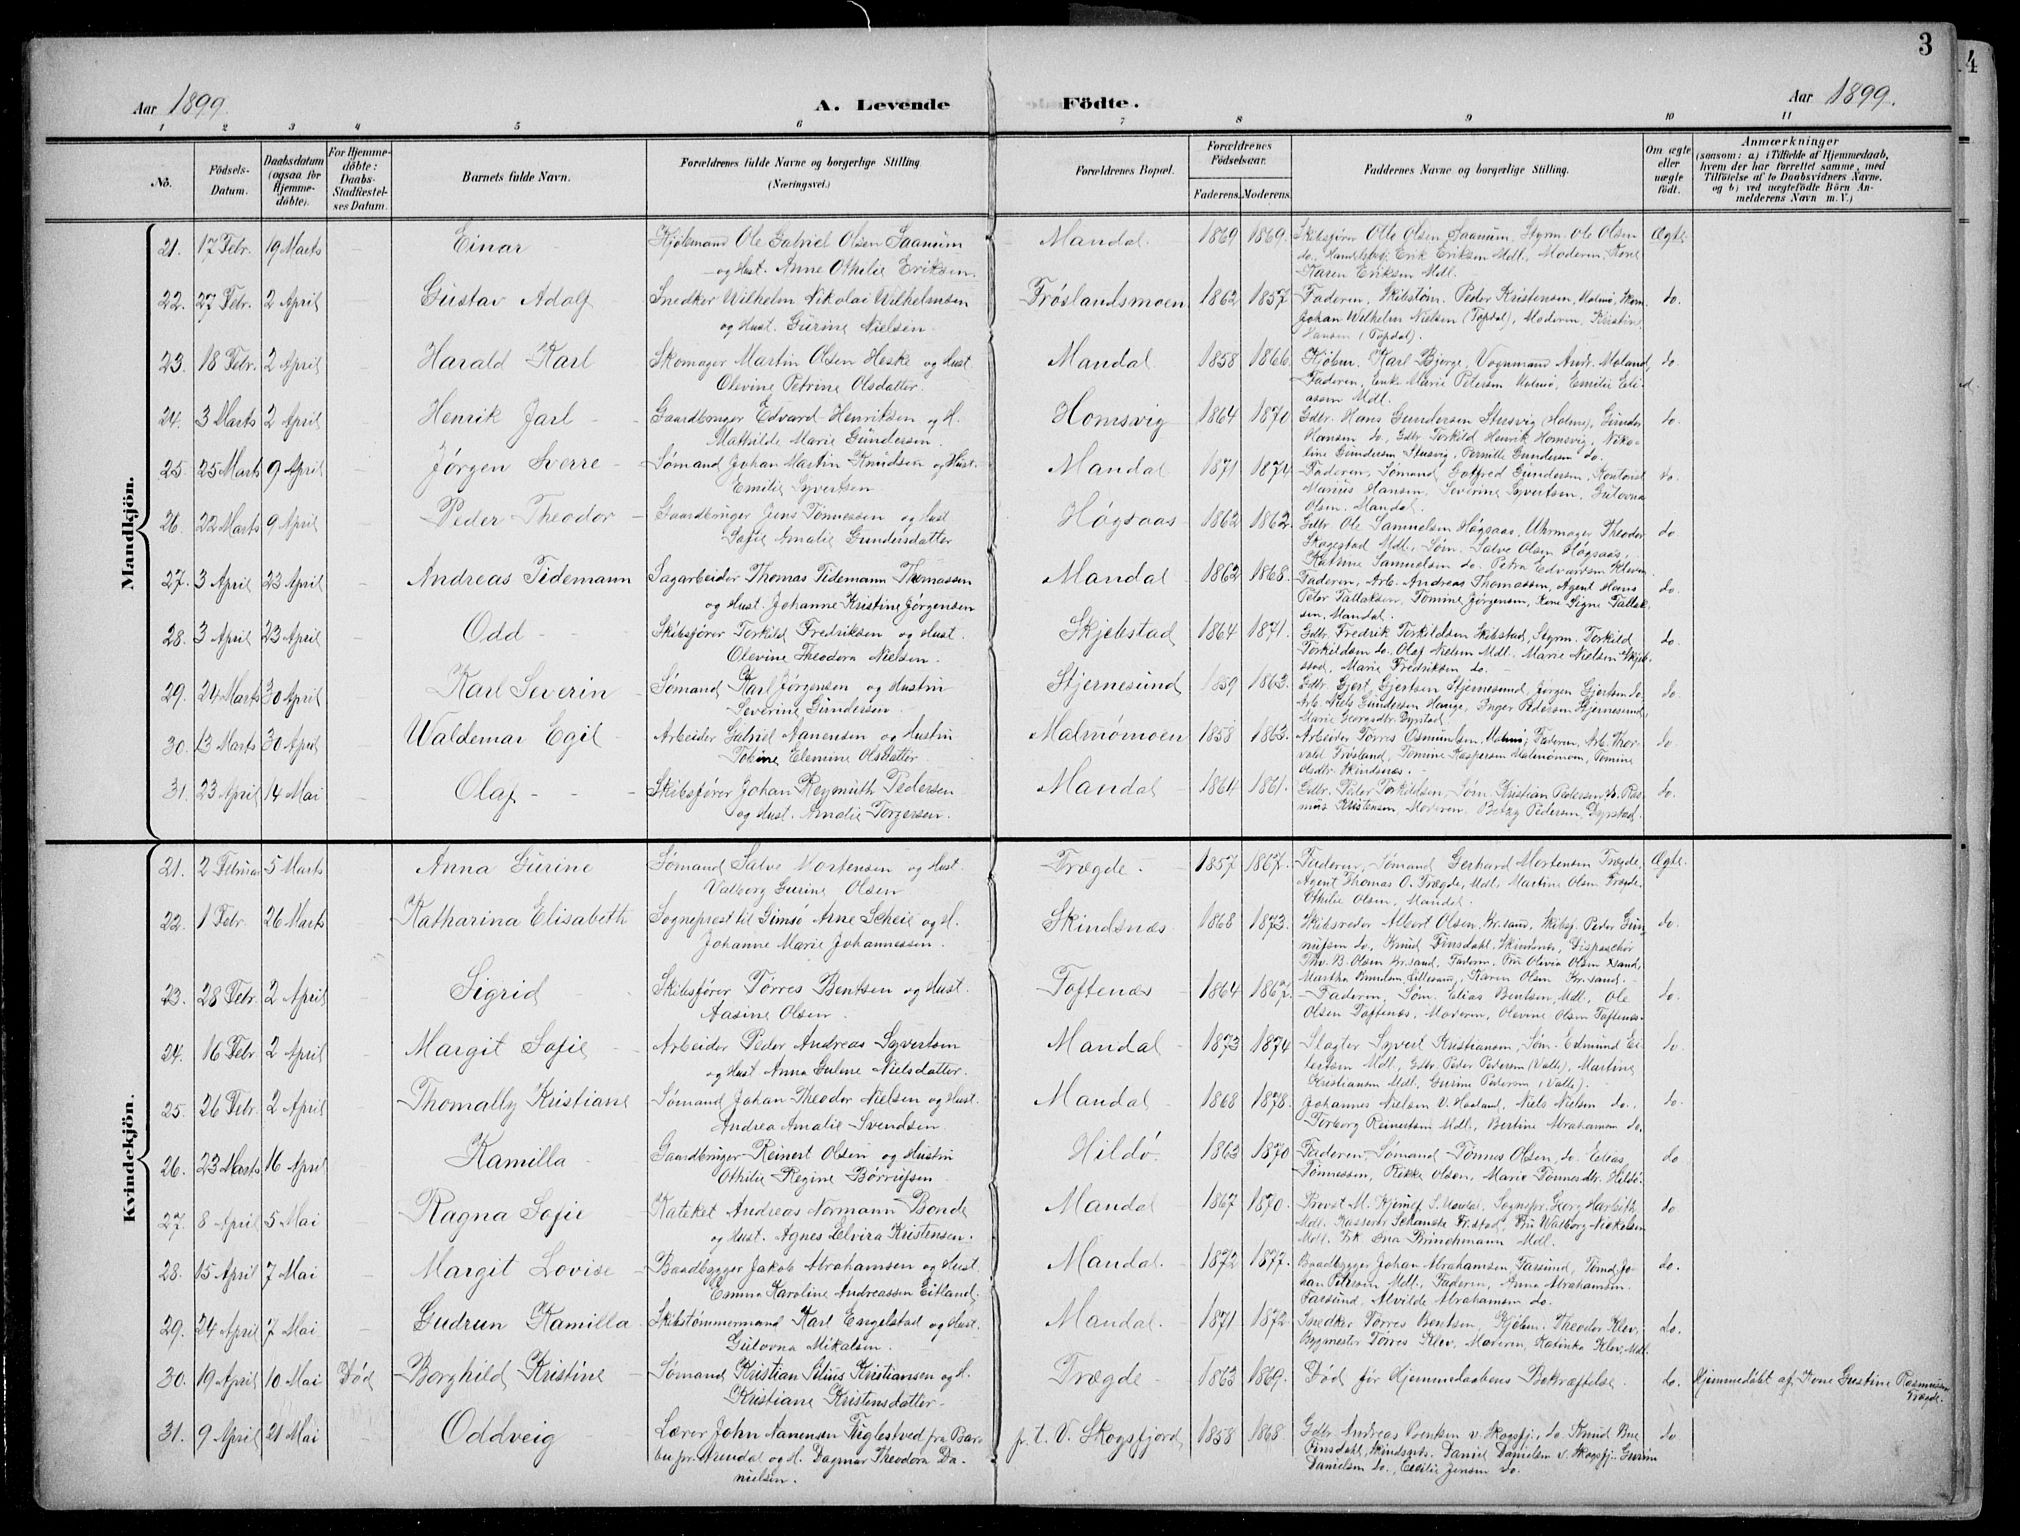 3
4
Aar 1899.
A. Levende Födte.
Aar 1899.
1 2 3 4 5 6 7 8 9 10 11
No.
Födsels-Datum.
Daabsdatum (ogsaa for Hjemmedöbte).
For Hjemmedöbte: Daabs-Stadfæstelses Datum.
Barnets fulde Navn.
Forældrenes fulde Navne og borgerlige Stilling. (Næringsvei.)
Forældrenes Bopæl.
Forældrenes Födselsaar.
Faderens. Moderens.
Faddernes Navne og borgerlige Stilling.
Om ægte eller uægte födt.
Anmærkninger
(saasom: a) i Tilfælde af Hjemmedaab, hvem der har forrettet samme, med Tilföielse af to Daabsvidners Navne, og b) ved uegtefödte Börn Anmelderens Navn m. V.)
Mandkjön.
21. 17 Febr. 19 Marts - Einar - Kjøbmand Ole Gabriel Olsen Saanum - Mandal. 1869 1869. Skibsfører Otto Olsen Saanum, Styrm. Ole Olsen Ægte
og Hust. Anne Othilie Eriksen. do. Handelsbej. Erik Eriksen Mdl., Moderen, Kone
Karen Eriksen Mdl.
22. 27 Febr. 2 April - Gustav Adolf Snedker Wilhelm Nikolai Wilhelmsen Frøslandsmoen 1862 1857. Faderen, Skibstøm. Peder Kristensen, Malmø, Skom. do.
og Hust. Gurine Nielsen. Johan Wilhelm Nielsen (Topdal), Moderen, Kristine
Hansen (Topdal).
23. 18 Febr. 2 April - Harald Karl Skomager Martin Olsen Heske og Hust. Mandal 1858 1866. Kjøbm. Karl Bjerge, Vognmand Andr. Moland, do
Olevine Petrine Olsdatter. Faderen, Enke Marie Petersen Malmø, Emilie Eli-
assen Mdl.
24. 3 Marts 2 April - Henrik Jarl - Gaardbruger Edvard Henriksen og H. Homsvig 1864 1870. Gdbr. Hans Gundersen Stusvig (Holme), Gunder do.
Mathilde Marie Gundersen. Hansen do, Gdbr. Torkild Henrik Homsvig, Niko-
line Gundersen Stusvig, Pernille Gundersen do.
25. 25 Marts 9 April - Jørgen Sverre - Sømand Johan Martin Knudsen og Hust. Mandal 1871 1874. Faderen, Sømand Gotfred Gundersen, Kontorist do.
Emilie Syvertsen Marius Hansen, Severine Syvertsen, Gulovna
Olsen, Mandal.
26. 22 Marts 9 April - Peder Theodor - Gaardbruger Jens Tønnessen og Hust Høgsaas 1862 1862. Gdbr. Ole Samuelsen Høgsaas, Uhrmager Theodor do
Sofie Amalie Gundersdatter Skagestad Mdl., Søm. Salve Olsen Høgsaas,
Katrine Samuelsen do. Petra Edvardsen Kleven.
27. 3 April 23 April - Andreas Tidemann Sagarbeider Thomas Tidemann Thomassen Mandal 1862 1868. Faderen, Arb. Andreas Thomassen, Agent Hans do.
og Hust. Johanne Kristine Jørgensen Peter Tallaksen, Tomine Jørgensen, Kone Signe Tallak-
sen, Mandal.
28. 3 April 23 April - Odd - - Skibsfører Torkild Fredriksen og Hust. Skjebstad 1864 1871. Gdbr. Fredrik Torkildsen Skibstad, Styrm. Torkild do.
Olevine Theodora Nielsen. Torkildsen do. Olaf Nielsen Mdl. Marie Nielsen Skjeb-
stad, Marie Fredriksen do.
29. 24 Marts 30 April - Karl Severin - Sømand Karl Jørgensen og Hustru Stjernesund 1859 1863. Gdbr. Gjert Gjertsen Stjernesund, Jørgen Gjertsen do. do.
Severine Gundersen. Arb. Niels Gundersen Hauge, Inger Pedersen Stjernesund,
Marie Georgsdtr. Dyrstad.
30. 13 Marts 30 April - Waldemar Egil - Arbeider Gabriel Aanensen og Hustru Malmømoen 1858 1863. Arbeider Tørres Osmundsen Malmø, Faderen, Arb. Thor- do
Tobine Elemine Olsdatter. vald Frøsland, Tomine Kaspersen Malmømoen, Tomine
Olsdtr. Skindsnæs.
31. 23 April 14 Mai - Olaf - - Skibsfører Johan Reymuth Pedersen Mandal 1864 1861. Gdbr. Peter Torkildsen, Søm. Kristian Pedersen, do. Ras- do.
og Hust. Amalie Torgersen. mus Kristensen, Moderen. Betzy Pedersen, Dyrstad.
Kvindekjön.
21. 2 Februar 5 Marts Anna Gurine Sømand Salve Mortensen og Hust. Trægde. 1857 1867. Faderen, Sømand Gerhard Mortensen Trægde, Ægte
Valborg Gurine Olsen Agent Thomas O. Trægde, Mdl., Martine Olsen Trægde,
Othilie Olsen, Mandal.
22. 1 Febr. 26 Marts - Katharina Elisabeth Sogneprest til Gimsø Arne Scheie og H. Skindsnæs 1868 1873. Skibsreder Albert Olsen Kr.sand, Skibsf. Peder Gun- do.
Johanne Marie Johannessen. nufsen do, Knud Finsdahl, Skindsnæs, Dispaschør
Thv. B. Olsen Kr.sand, Faderen, Fru Olivia Olsen Krsand,
Martha Knudsen Lillesand, Karen Olsen Kr.sand.
23. 28 Febr. 2 April - Sigrid - Skibsfører Tørres Bentsen og Hust. Toftenæs 1864 1867. Faderen, Søm. Elias Bentsen, Mdl., Ole do.
Aasine Olsen. Olsen Toftenæs, Moderen, Olevine Olsen Toftenæs.
24. 16 Febr. 2 April - Margit Sofie - Arbeider Peder Andreas Syvertsen Mandal 1873 1874 Slagter Syvert Kristiansen, Søm. Edmund Ei- do.
og Hust Anna Gulene Nielsdatter. lertsen Mdl., Gdbr. Peder Pedersen (Valle), Martine
Kristiansen Mdl., Gurine Pedersen (Valle).
25. 26 Febr. 2 April Thomally Kristiane Sømand Johan Theodor Nielsen og Hust. Mandal 1868 1878. Johannes Nielsen V. Haaland, Niels Nielsen do. do.
Andrea Amalie Svendsen. Torborg Reinertsen Mdl, Bertine Abrahamsen do.
26. 23 Marts 16 April Kamilla - Gaardbruger Reinert Olsen og Hustru Hildø. 1863 1870 Faderen, Sømand Tønnes Olsen, do. Edeas do
Othilie Regine Børrufsen. Tønnessen, Rikke Olsen, Marie Tønnesdtr. Hildø.
27. 8 April 5 Mai Ragna Sofie - Kateket Andreas Normann Bonde Mandal 1867 1870. Provst M. Kjerulf S. Mandal, Sognepr. Georg Harbitz do
og Hust. Agnes Elvira Kristensen. Mdl. Kasserer Schanste Fr.stad, Fru Valborg Nickelsen
Mdl. Frk Ina Brinchmann Mdl.
28. 15 April 7 Mai Margit Lovise Baadbygger Jakob Abrahamsen og Hust. Mandal. 1872 1877. Baadbygger Johan Abrahamsen, Farsund, Tømd. Jo- do.
Emma Karoline Andreassen Eitland. han Petersen Mdl., Faderen, Anna Abrahamsen
Farsund, Alvilde Abrahamsen do.
29. 24 April 7 Mai Gudrun Kamilla Skibstømmermand Karl Engelstad og Hust. Mandal. 1871 1872. Snedker Tørres Bentsen, Kjøbm. Theodor Klev, do.
Gulovna Mikalsen. Bygmester Tørres Klev, Moderen, Katinka Klev, Mdl.
30. 19 April 10 Mai Död Borghild Kristine Sømand Kristian Silius Kristiansen og H. Trægde 1863 1869. Død før Hjemmedaabens Bekræftelse. do. Hjemmedøbt af Kone Gustine Rasmussen
Kristiane Kristensdatter. Trægde.
31. 9 April 21 Mai Oddveig - Lærer John Aanensen Fuglestved fra Bar- p. t. V. Skogsfjord 1858 1868. Gdbr Andreas Bentsen v. Skogsfj., do. Knud Bue do
bu pr. Arendal og H. Dagmar Theodora Da- Finsdahl, Skindsnæs. Daniel Danielsen v. Skogsfj. Gurine
nielsen. Danielsen do., Cecilie Jensen do.